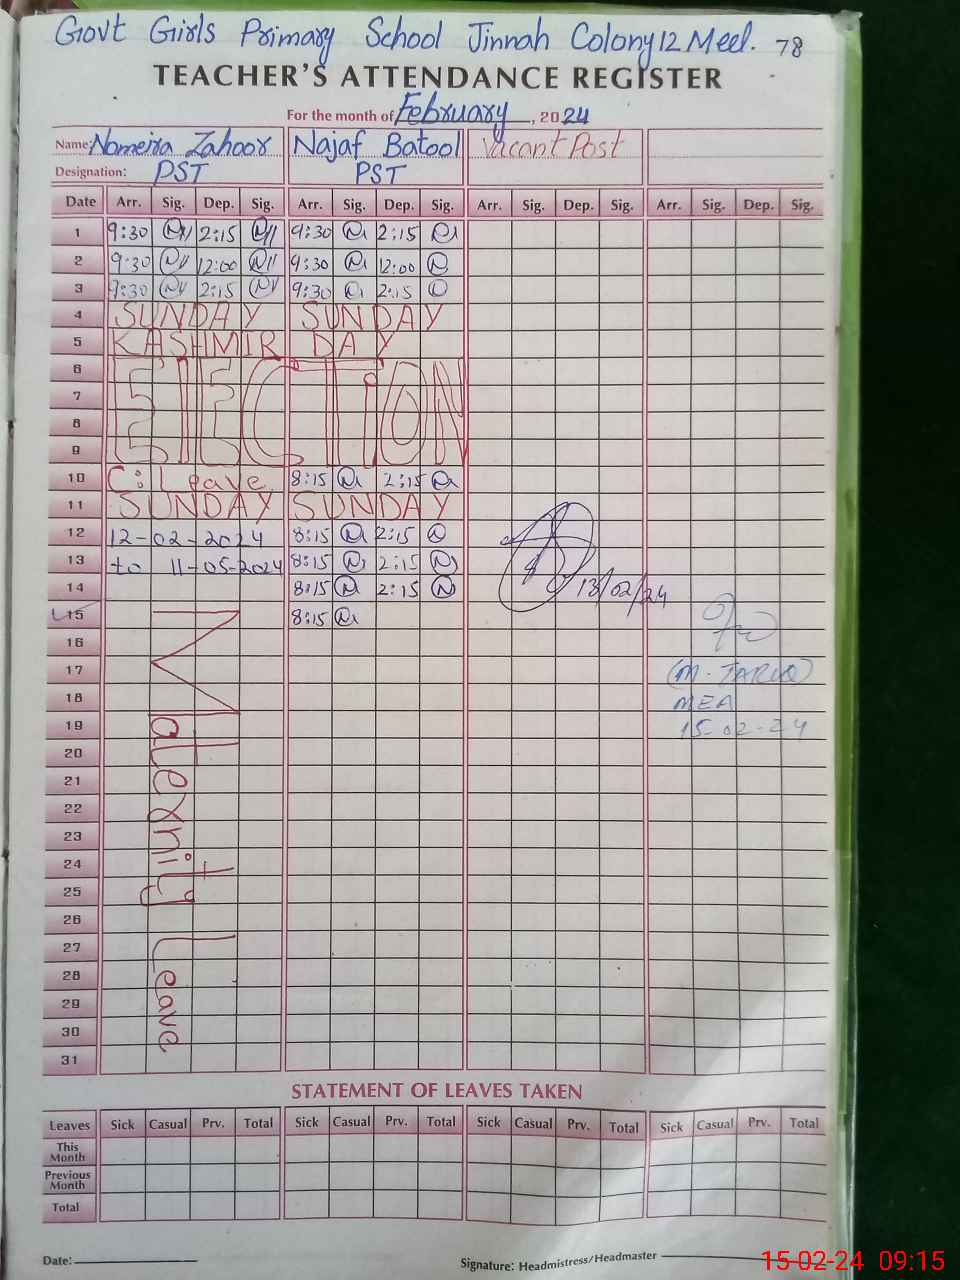 Govt Girls Primary School Jinnah Colony 12 Meel. 78
TEACHER'S ATTENDANCE REGISTER
For the month of February, 2024
Name: Nomeira Zahoor Najaf Batool Vacant Post
Designation: PST PST
Date Arr. Sig. Dep. Sig. Arr. Sig. Dep. Sig. Arr. Sig. Dep. Sig. Arr. Sig. Dep. Sig.
1 9:30 2:15 9:30 2:15
2 9:30 12:00 9:30 12:00
3 9:30 2:15 9:30 2:15
4 SUNDAY SUNDAY
5 KASHMIR DAY
6
7
ELECTION
8
9
10 C: Leave 8:15 2:15
11 SUNDAY SUNDAY
12 12-02-2024 8:15 2:15
13 to 11-05-2024 8:15 2:15
14 8:15 2:15 13/02/24
15 8:15
16
17 (M. TARIQ)
18 MEA
19 15-02-24
20
21
22
23
24
25
26
27
28
29
30
31
Maternity Leave
STATEMENT OF LEAVES TAKEN
Leaves Sick Casual Prv. Total Sick Casual Prv. Total Sick Casual Prv. Total Sick Casual Prv. Total
This Month
Previous Month
Total
Date: Signature: Headmistress/Headmaster
15-02-24 09:15